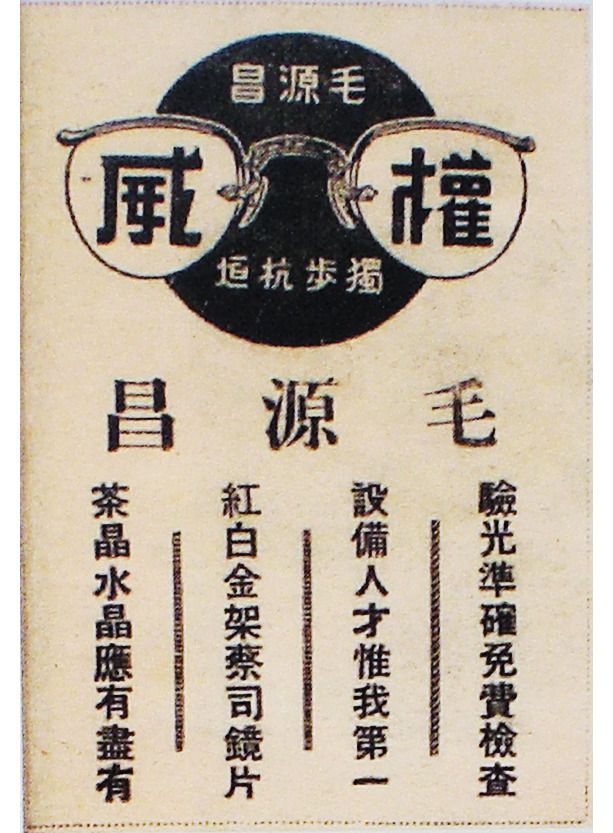 毛源昌
權威
獨步杭垣
毛源昌
驗光準確免費檢查
設備人才惟我第一
紅白金架蔡司鏡片
茶晶水晶應有盡有